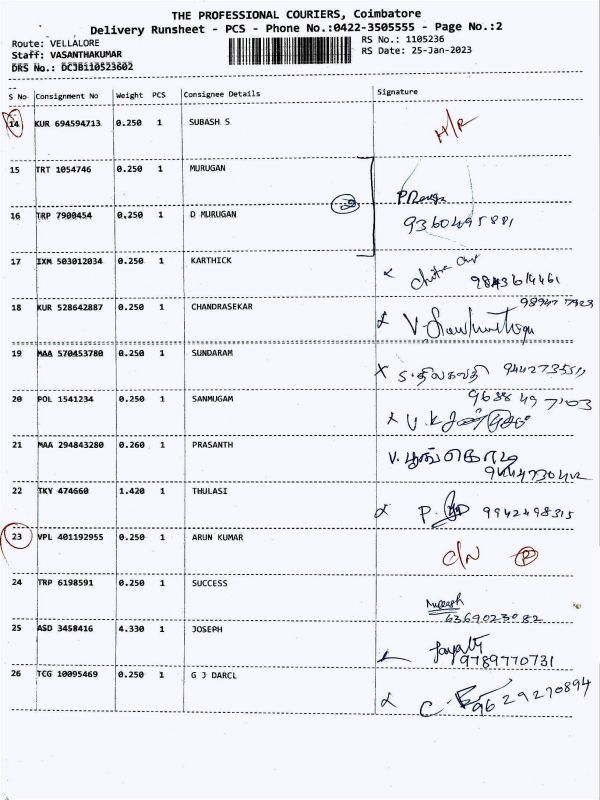 THE PROFESSIONAL COURIERS, Coimbatore
Delivery Runsheet - PCS - Phone No.:0422-3505555 - Page No.:2
Route: VELLALORE
RS No.: 1105236
Staff: VASANTHAKUMAR
RS Date: 25-Jan-2023
DRS No.: DCJB110523602
S No Consignment No Weight PCS Consignee Details Signature
14 KUR 694594713 0.250 1 SUBASH S H/R
15 TRT 1054746 0.250 1 MURUGAN
16 TRP 7900454 0.250 1 D MURUGAN 9360495881
17 IXM 503012034 0.250 1 KARTHICK 9843614461
18 KUR 528642887 0.250 1 CHANDRASEKAR
19 MAA 570453780 0.250 1 SUNDARAM S. திலகவதி
20 POL 1541234 0.250 1 SANMUGAM 9688497103
21 MAA 294843280 0.260 1 PRASANTH V. பூங்கொடி
22 TKY 474660 1.420 1 THULASI P. 9942498315
23 VPL 401192955 0.250 1 ARUN KUMAR C/N R
24 TRP 6198591 0.250 1 SUCCESS
6369023082
25 ASD 3458416 4.330 1 JOSEPH
9789770731
26 TCG 10095469 0.250 1 G J DARCL C. 9629270894